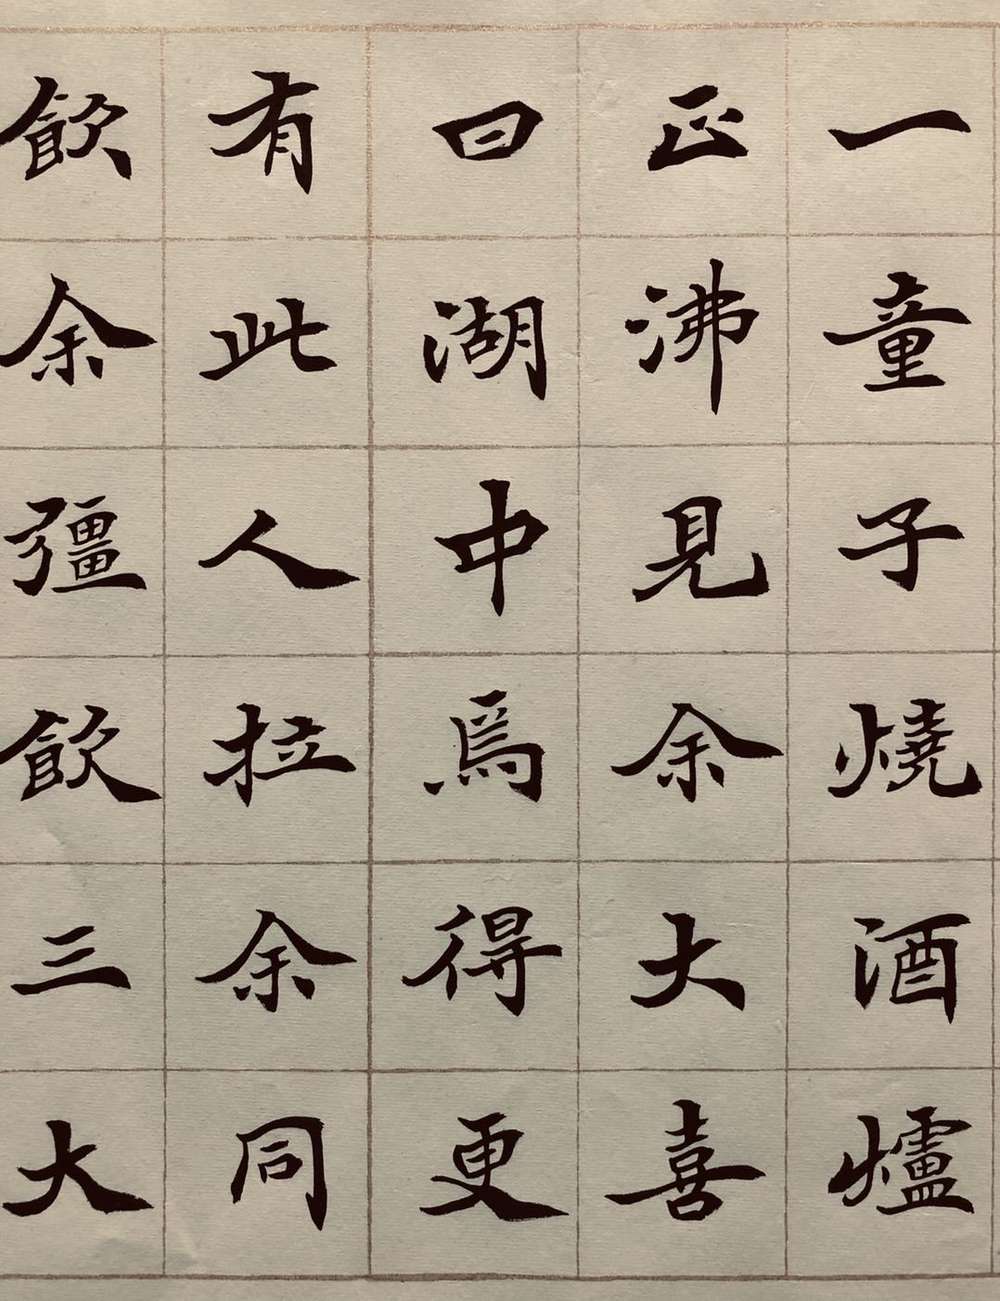 一童子燒酒爐
正沸見余大喜
曰湖中爲得更
有此人拉余同
飲余彊飲三大